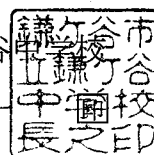 鎌ケ谷市
立鎌ケ谷
中学校
長之印